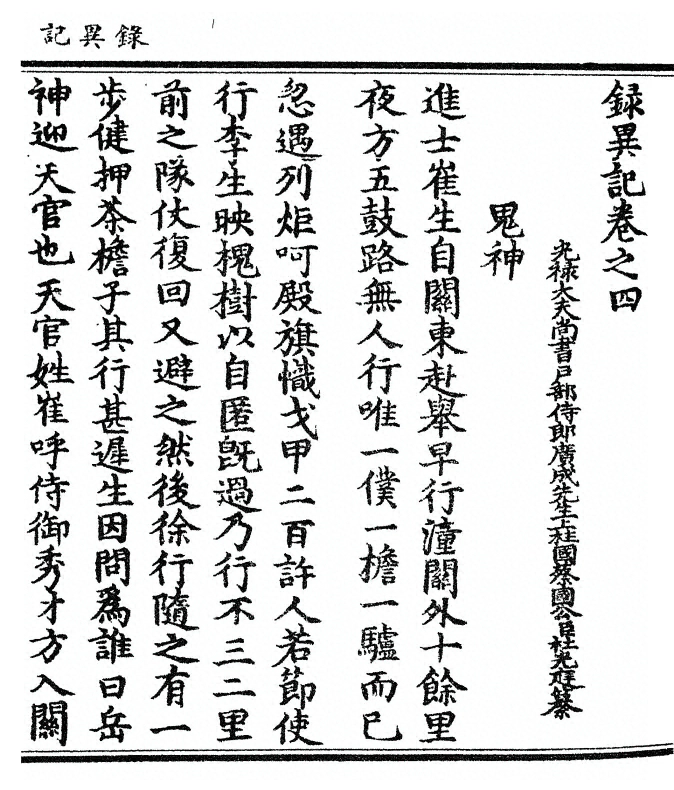 記異錄
録異記卷之四
光禄大夫尚書戸部侍郎廣成先生上柱國蔡國公臣杜光庭纂
鬼神
進士崔生自關東赴舉早行潼關外十餘里
夜方五鼓路無人行唯一僕一檐一驢而已
忽遇列炬呵殿旗幟戈甲二百許人若節使
行李生映槐樹以自匿旣過乃行不三二里
前之隊仗復回又避之然後徐行隨之有一
步健押茶檐子其行甚遲生因問爲誰曰岳
神迎天官也天官姓崔呼侍御秀才方入關